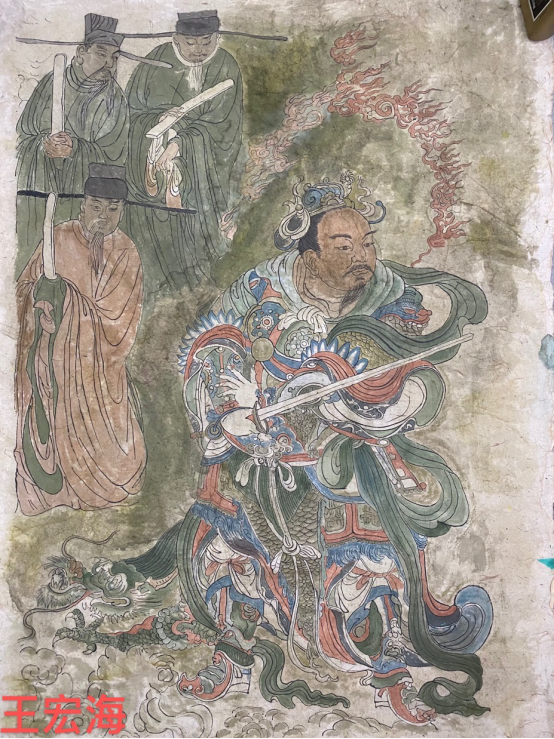 王宏海